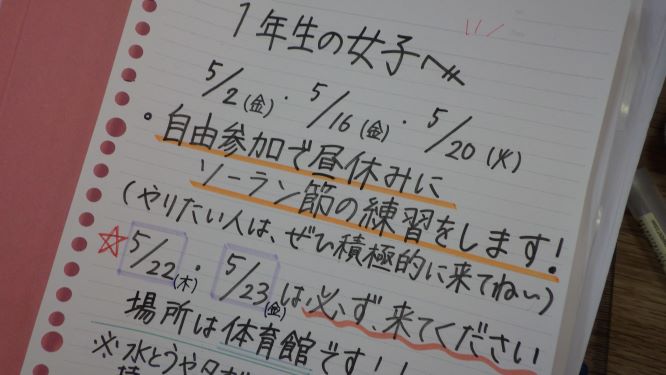 1年生の女子へ
5/2(金)・5/16(金)・5/20(火)
・自由参加で昼休みに
ソーラン節の練習をします!
(やりたい人は、ぜひ積極的に来てねい)
☆5/22(木)・5/23(金)は必ず、来てください
場所は体育館です!!
※水とうや